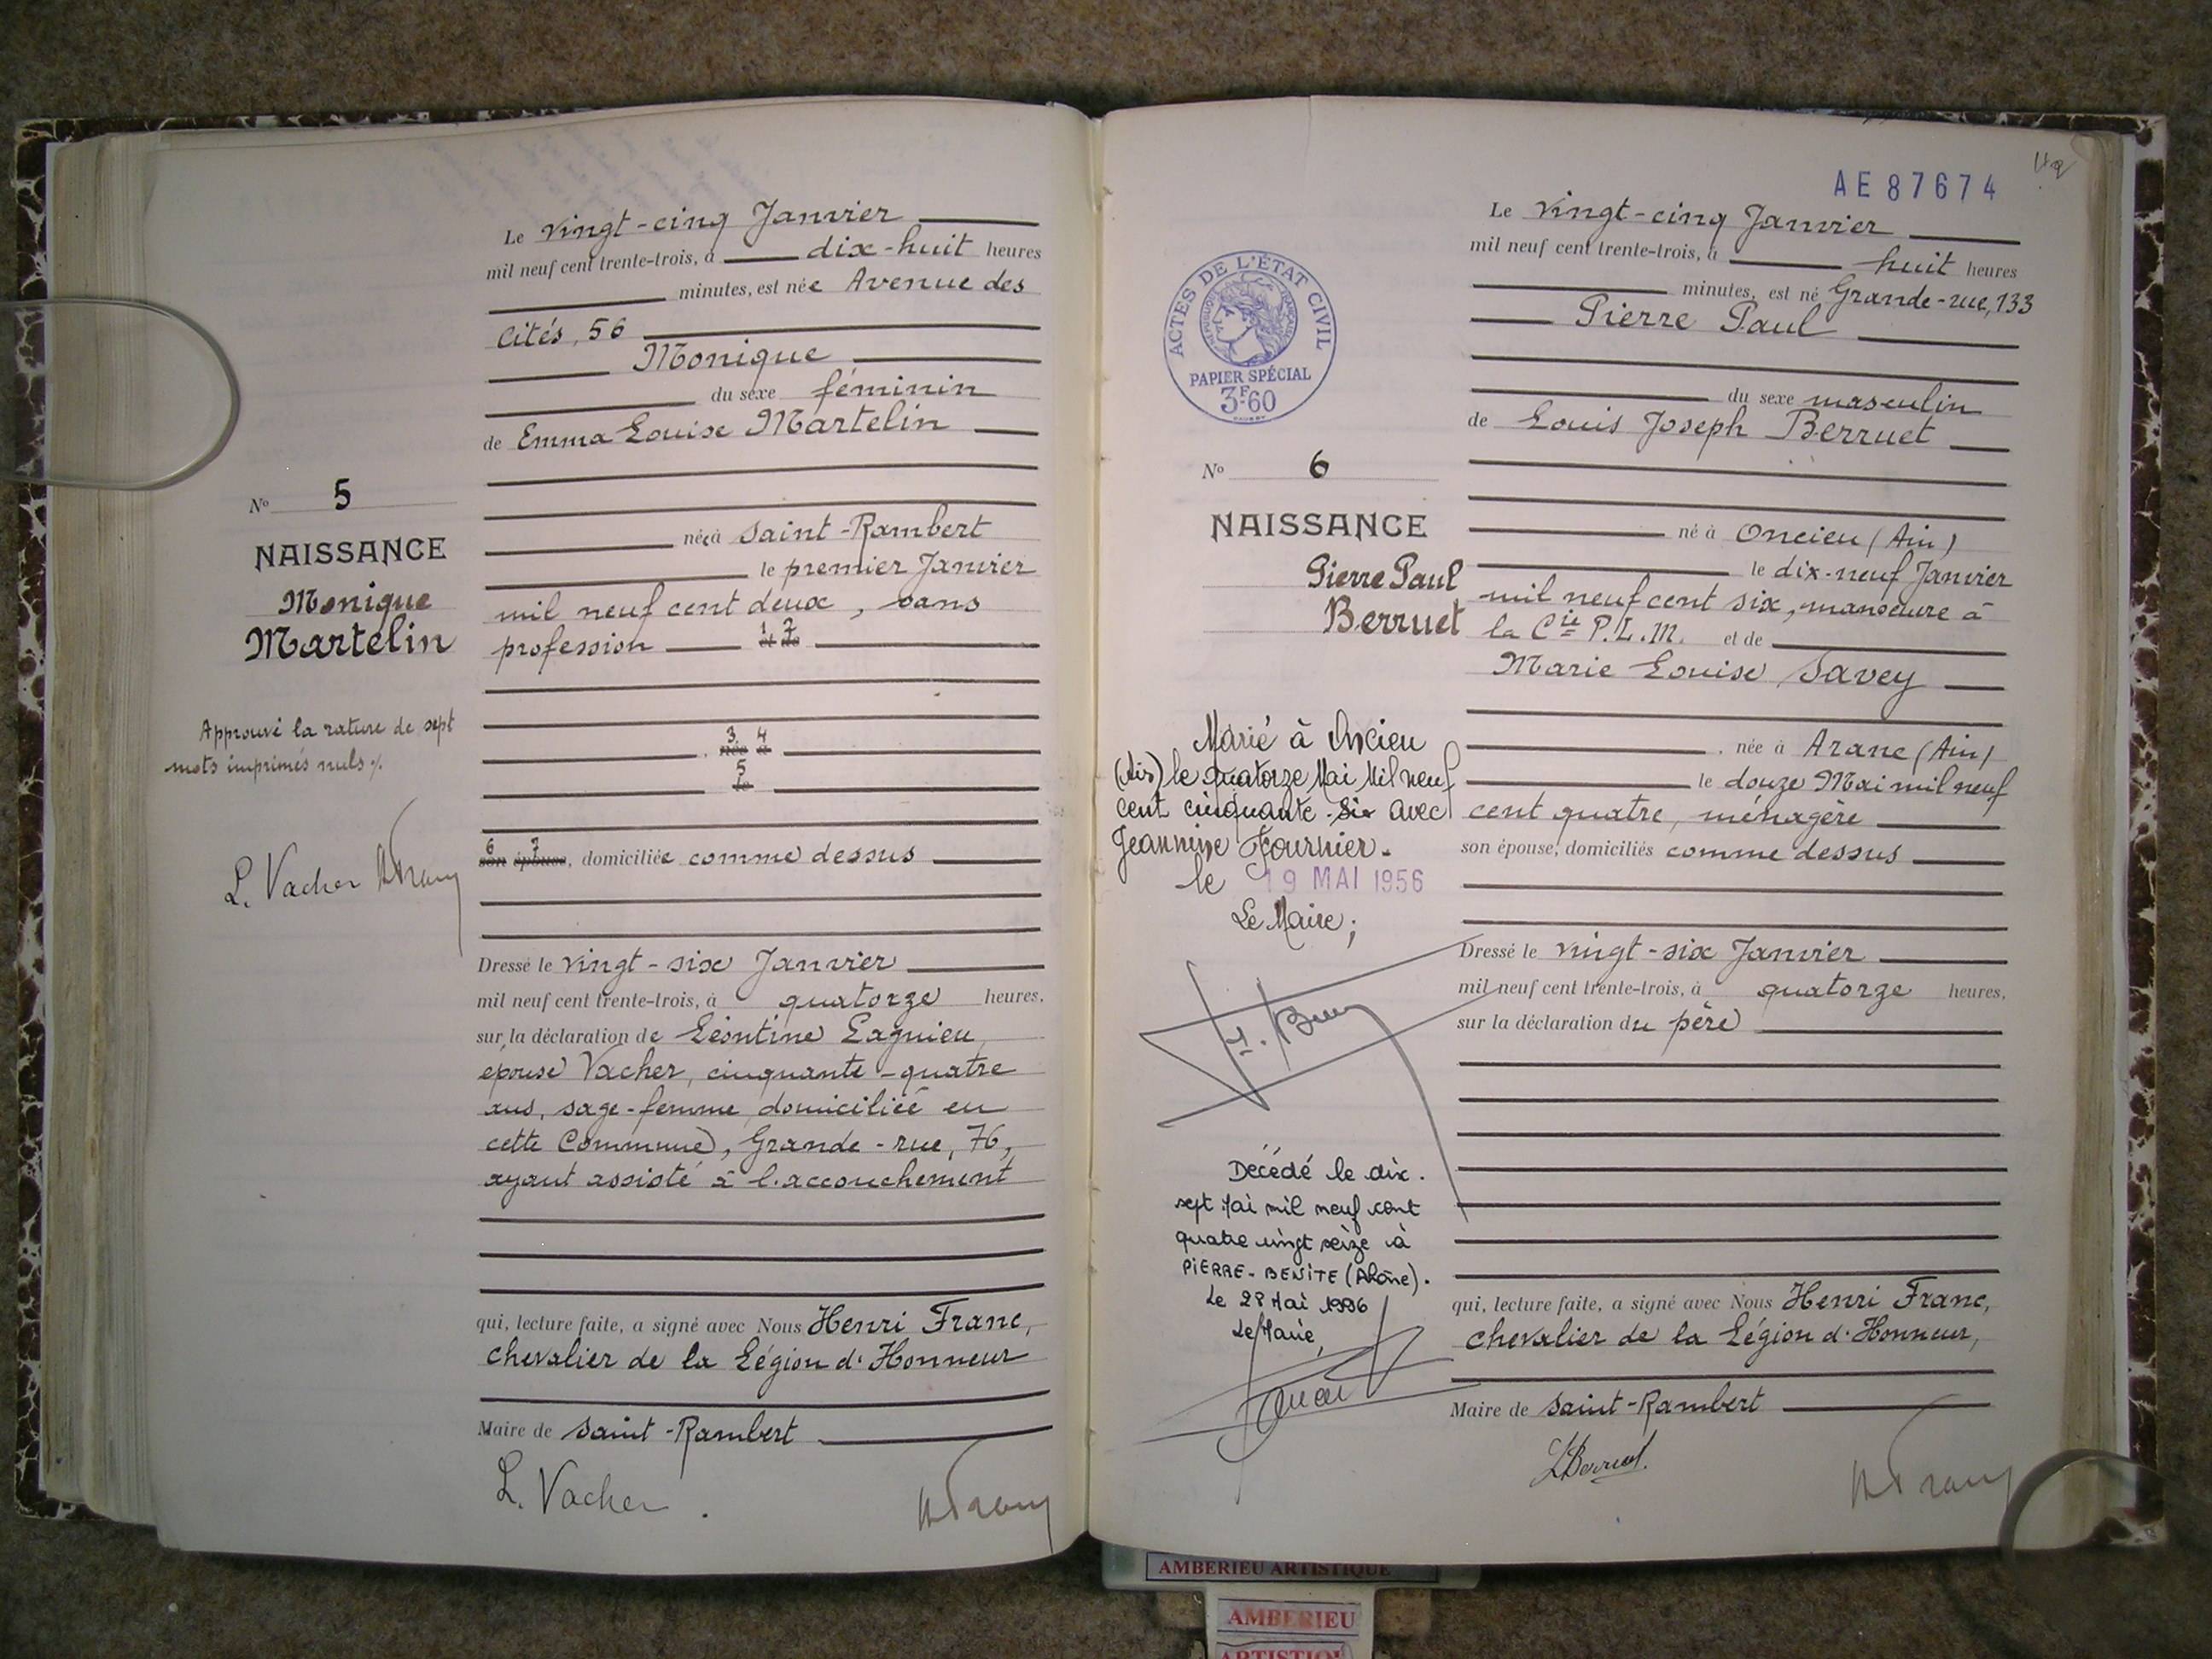 Le vingt-cinq Janvier
mil neuf cent trente-trois, à dix-huit heures
minutes, est née Avenue des
Cités, 56
Monique
du sexe féminin
de Emma Louise Martelin
No 5
NAISSANCE
Monique
Martelin
née à Saint-Rambert
le premier Janvier
mil neuf cent deux, sans
profession 1 2 et de
Approuvé la rature de sept
mots imprimés nuls
3 4 née à
5 le
6 7 son épouse, domiciliée comme dessus
L. Vacher
Dressé le vingt-six Janvier
mil neuf cent trente-trois, à quatorze heures.
sur la déclaration de Léontine Lagnieu,
épouse Vacher, cinquante-quatre
ans, sage-femme, domiciliée en
cette Commune, Grande-rue, 76,
ayant assisté à l'accouchement
qui, lecture faite, a signé avec Nous Henri Franc,
Chevalier de la Légion d'Honneur
Maire de Saint-Rambert
L. Vacher
AE 87674
Le vingt-cinq Janvier
mil neuf cent trente-trois, à huit heures
minutes, est né Grande-rue, 133
Pierre Paul
du sexe masculin
de Louis Joseph Berruet
ACTES DE L'ÉTAT CIVIL
RÉPUBLIQUE FRANÇAISE
PAPIER SPÉCIAL
3F60
No 6
NAISSANCE
Pierre Paul
Berruet
né à Oncieu (Ain)
le dix-neuf Janvier
mil neuf cent six, manoeuvre à
la Cie P.L.M. et de
Marie Louise Savey
née à Aranc (Ain)
le douze Mai mil neuf
cent quatre, ménagère
son épouse, domiciliés comme dessus
Marié à Oncieu
(Ain) le quatorze Mai Mil neuf
cent cinquante-six avec
Jeannine Fournier.
le 19 MAI 1956
Le Maire;
Dressé le vingt-six Janvier
mil neuf cent trente-trois, à quatorze heures,
sur la déclaration du père
Décédé le dix.
sept Mai mil neuf cent
quatre vingt seize à
PIERRE-BENITE (Rhône).
Le 28 Mai 1996
Le Maire,
qui, lecture faite, a signé avec Nous Henri Franc,
Chevalier de la Légion d'Honneur,
Maire de Saint-Rambert
LBerruet
AMBERIEU ARTISTIQUE
AMBERIEU
ARTISTIQUE